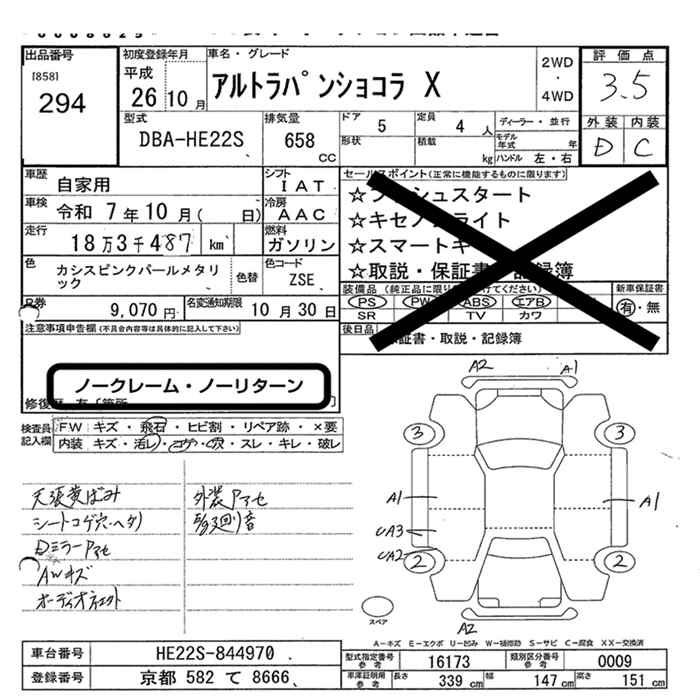 出品番号
[858]
294
初度登録年月
平成
26 10 月
車名・グレード
アルトラパンショコラ X
2WD
・
4WD
評価点
3.5
外装 内装
D C
型式
DBA-HE22S
排気量
658
CC
ドア 5
形状
定員 4 人
積載 kg
ディーラー・並行
モデル年式 年
ハンドル 左・右
車歴
自家用
シフト
IAT
車検
令和 7年10月( 日)
冷房
AAC
走行
18万3千487 km
燃料
ガソリン
色
カシスピンクパールメタリック
色替
色コード
ZSE
9,070円
名変通知期限 10月30日
セールスポイント(正常に機能するものに限ります)
☆キセノンライト
☆取説・保証書・記録簿
装備品
PS PW ABS エアB
SR TV カワ
新車保証書
有・無
後日品
保証書・取説・記録簿
注意事項申告欄(不具合内容等は具体的に記入して下さい)
ノークレーム・ノーリターン
検査員記入欄
FW キズ・飛石・ヒビ割・リペア跡・×要
内装 キズ・汚レ・コゲ・穴・スレ・キレ・破レ
天張黄ばみ
シートコゲ穴・ヘタリ
Dミラーアセ
AWキズ
外装アセ
A2 A1
3 3
A1 A1
UA3
UA2
2 2
A2
スペア
A-キズ E-エクボ U-凹み W-補修跡 S-サビ C-腐食 XX-交換済
車台番号 HE22S-844970
登録番号 京都 582 て 8666
型式指定番号 参考 16173
類別区分番号 参考 0009
車庫証明用 参考 長さ 339 cm 幅 147 cm 高さ 151 cm